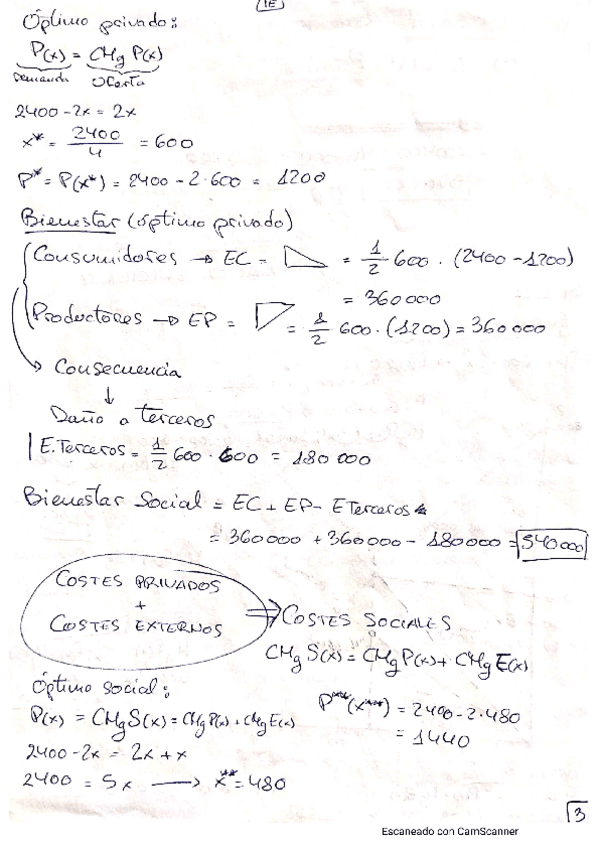 1E
Óptimo privado:
P(x) = CMg P(x)
Demanda Oferta
2400 - 2x = 2x
x* = 2400/4 = 600
P* = P(x*) = 2400 - 2·600 = 1200
Bienestar (óptimo privado)
Consumidores → EC = = 1/2 600 · (2400 - 1200)
= 360000
Productores → EP = = 1/2 600 · (1200) = 360000
Consecuencia
↓
Daño a terceros
E.Terceros = 1/2 600 · 600 = 180 000
Bienestar Social = EC + EP - E Terceros
= 360000 + 360000 - 180000 = 540000
COSTES PRIVADOS
+
COSTES EXTERNOS
⇒ COSTES SOCIALES
CMg S(x) = CMg P(x) + CMg E(x)
Óptimo social:
P(x) = CMg S(x) = CMg P(x) + CMg E(x)
2400 - 2x = 2x + x
2400 = 5x → x** = 480
P**(x**) = 2400 - 2·480
= 1440
3
Escaneado con CamScanner